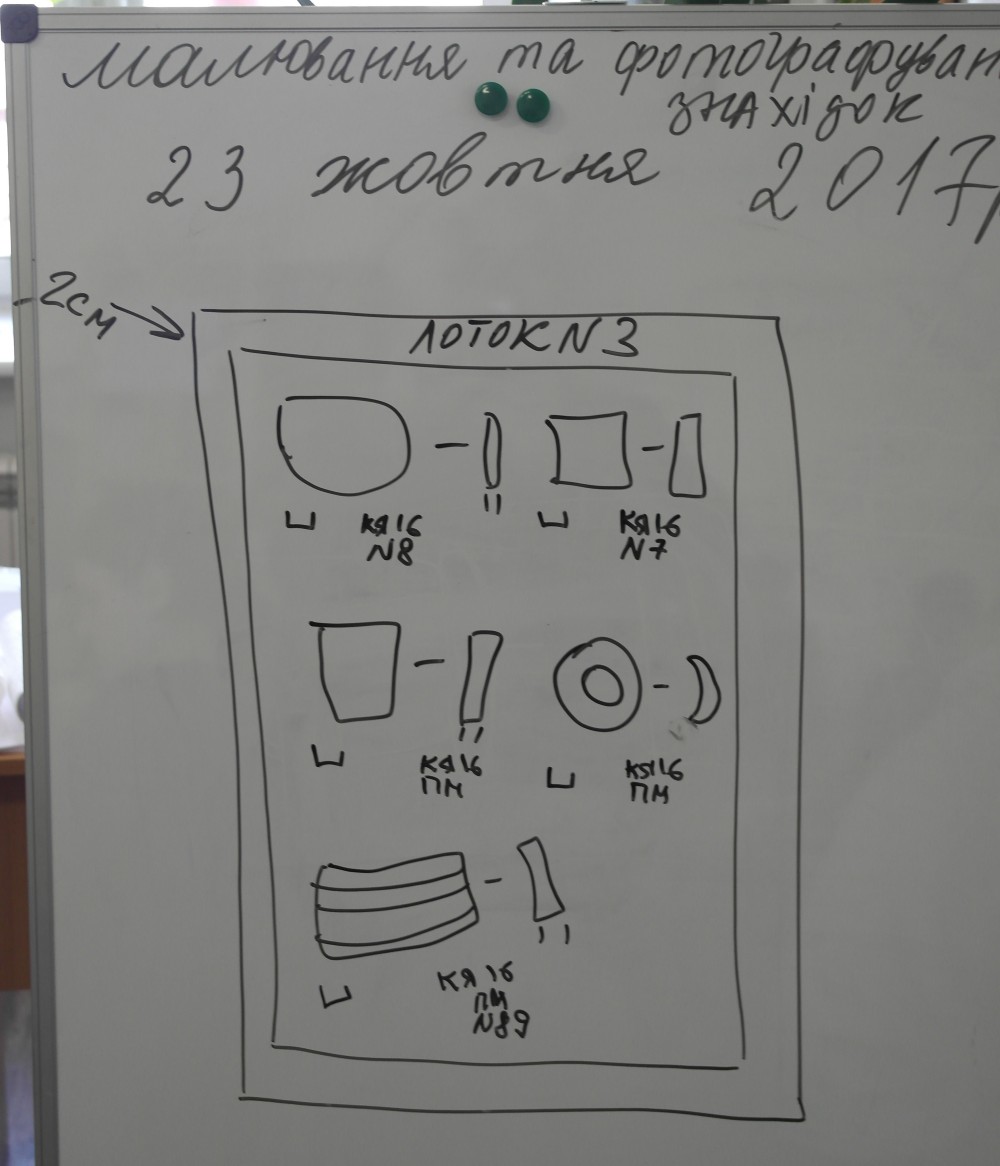 малювання та фотографуван
знахідок
23 жовтня 2017р
2см
ЛОТОК N 3
КЯ16
N8
КЯ16
N7
КЯ16
ПМ
КЯ16
ПМ
КЯ16
ПМ
N89